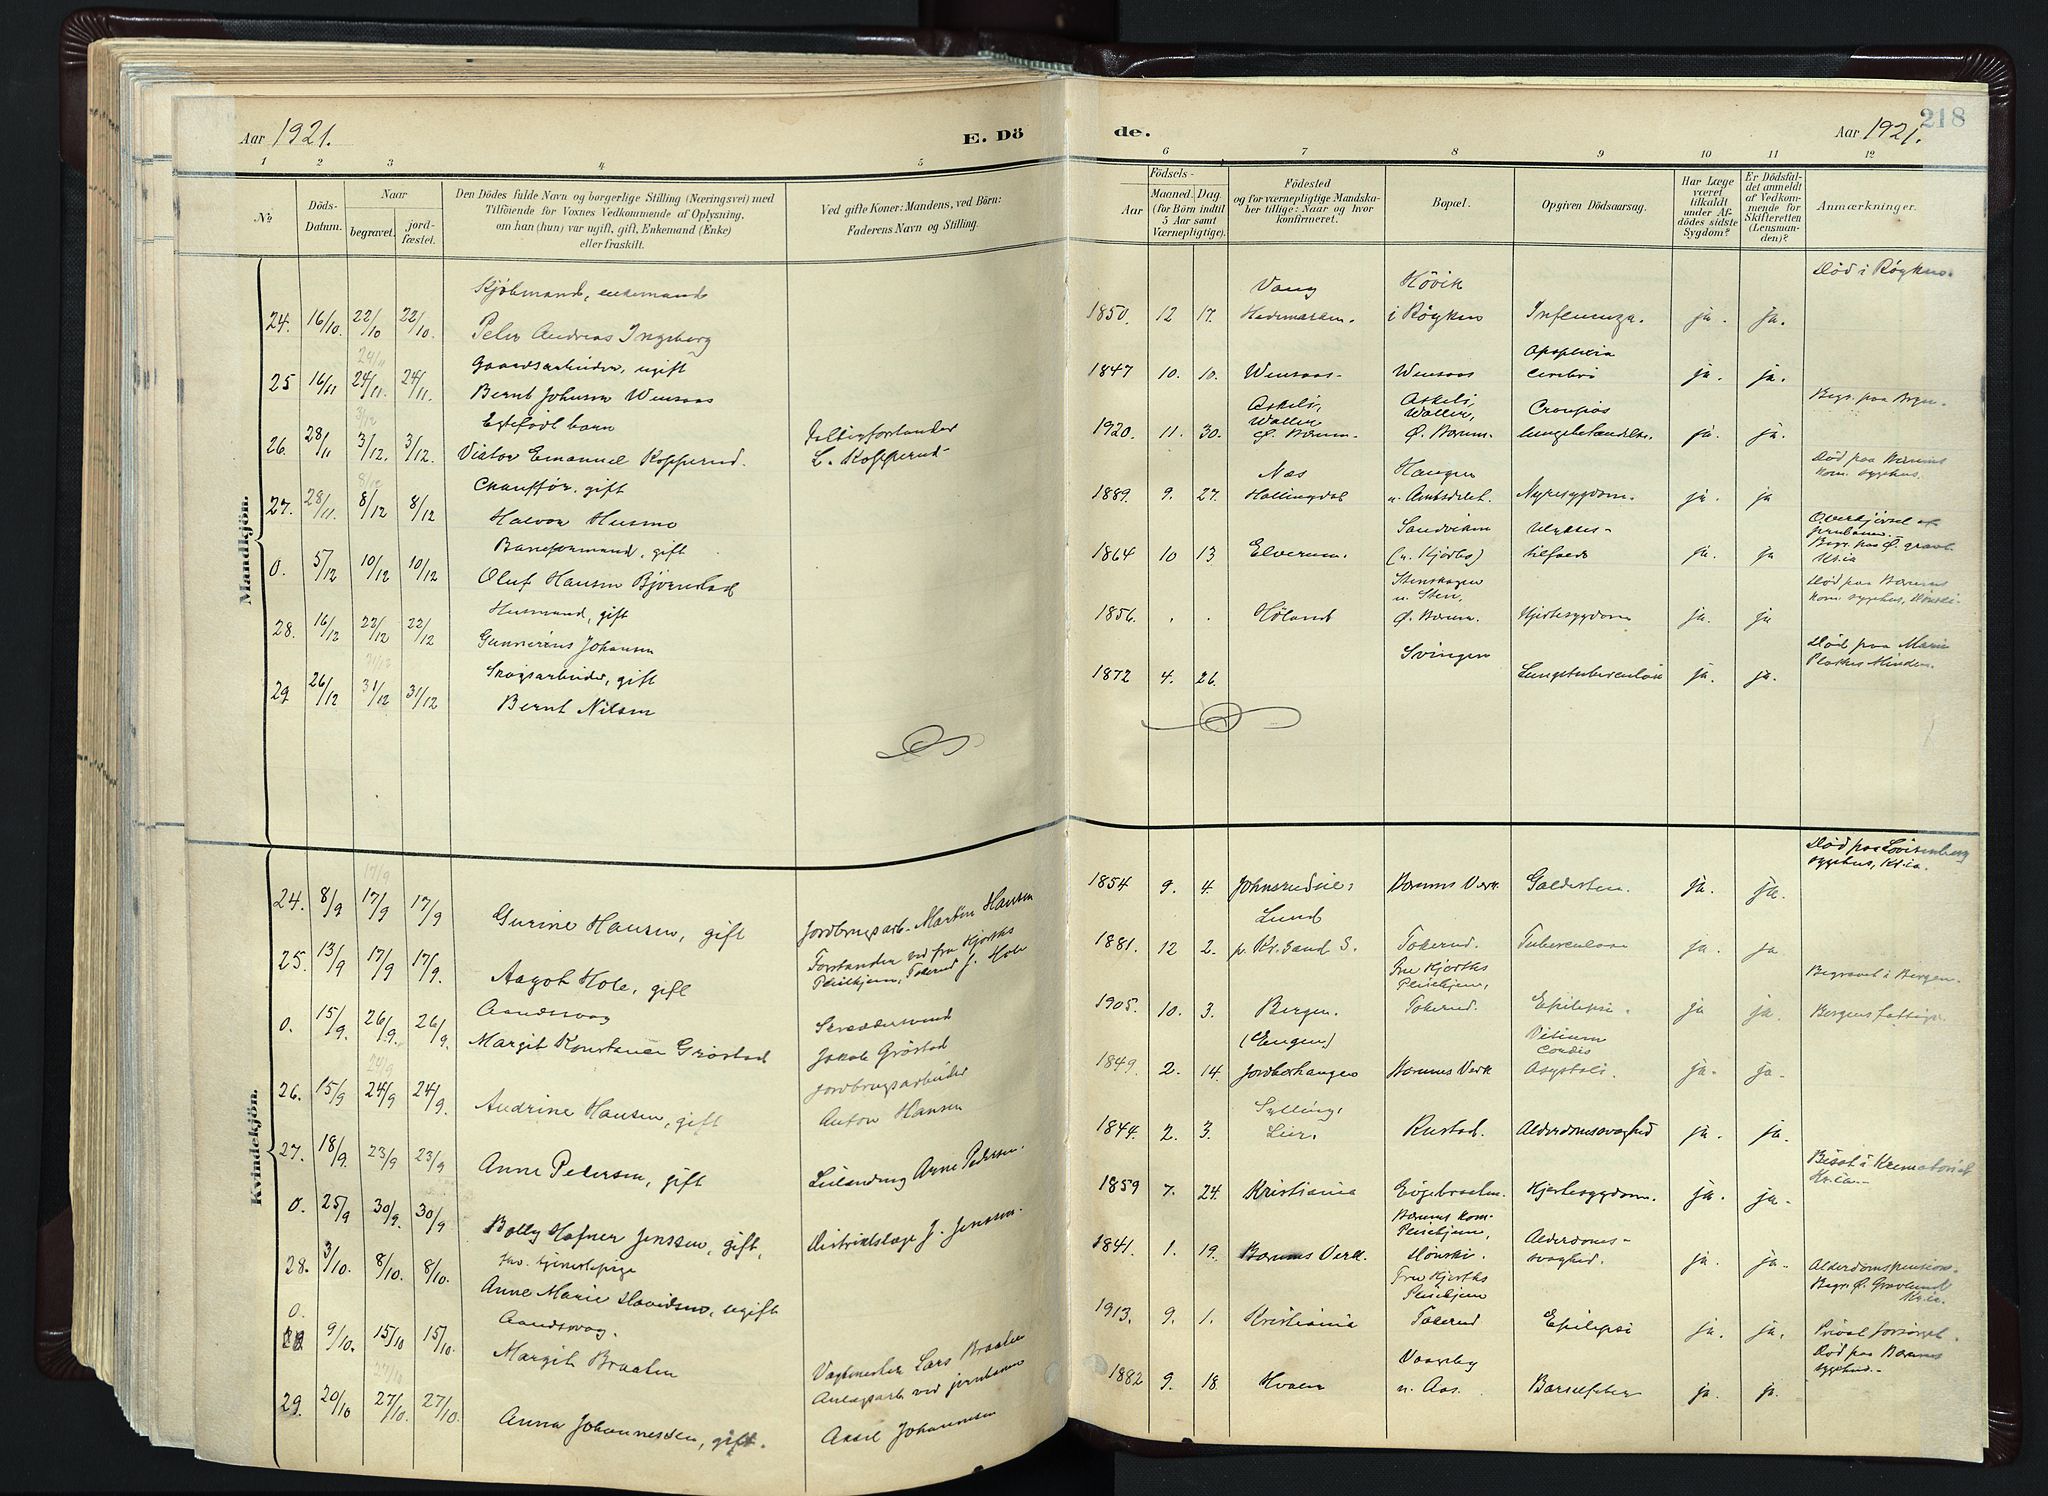 218
Aar 1921.
E. Dö
de.
Aar 1921.
1 2 3 4 5 6 7 8 9 10 11 12
No
Döds-
Datum.
Naar
begravet.
jord-
fæstet.
Den Dödes fulde Navn og borgerlige Stilling (Næringsvei) med
Tilföiende for Voxnes Vedkommende af Oplysning,
om han (hun) var ugift, gift, Enkemand (Enke)
eller fraskilt.
Ved gifte Koner: Mandens, ved Börn:
Faderens Navn og Stilling.
Födsels-
Aar
Maaned. Dag.
(for Börn indtil
5 Aar samt
Værnepligtige).
Födested
og for værnepligtige Mandska-
ber tillige: Naar og hvor
konfirmeret.
Bopæl.
Opgiven Dödsaarsag.
Har Læge
været
tilkaldt
under Af-
dödes sidste
Sygdom?
Er Dödsfal-
det anmeldt
af Vedkom-
mende for
Skifteretten
(Lensman-
den)?
Anmærkninger.
Mandkjön.
24. 16/10. 22/10 22/10.
enkemand
Peter Andreas Ingeberg
1850. 12 17.
Vang
Hedemarken.
Høvik
i Røyken
Influenza. ja. ja.
Død i Røyken.
24/11
25 16/11 24/11. 24/11.
Gaardsarbeider, ugift
Bernt Johnsen Wensaas
1847 10. 10. Wensaas Wensaas
Apoplexia
cerebri
ja. ja.
3/12
26. 28/11 3/12. 3/12.
Egtefødt barn
Victor Emanuel Kopperud.
L. Kopperud
1920. 11. 30.
Ø. Bærum.
Ø. Bærum.
Croupøs
lungebetændelse.
ja. ja.
8/12
27. 28/11. 8/12 8/12
Chauffør, gift
Halvor Husmo
1889. 9. 27.
Næs
Hallingdal
Haugen
Nyresygdom. ja. ja
Død paa Bærums
kom. sygehus.
0. 5/12 10/12 10/12
Baneformand, gift
Oluf Hansen Bjørnstad
1864 10 13 Elverum.
Sandviken
(u. Kjørbo)
Ulykkes-
tilfælde
ja. ja
Overkjørsel af
jernbanen.
Begr. paa Ø. gravl.
Kr.ia
28. 16/12 22/12 22/12
Husmand, gift
Gunnerius Johansen
1856. . . Høland
Stenskogen
u. Sten,
Ø. Bærum.
Hjertesygdom ja. ja
Død paa Bærums
kom. sygehus, Dønski.
31/12
29 26/12 31/12 31/12
Skogsarbeider, gift
Bernt Nilsen
1872 4. 26.
Svingen
Lungetuberculose ja. ja.
Død paa Marie
Plathes Minde.
Kvindekjön.
17/9
24. 8/9 17/9 17/9
Gurine Hansen, gift
Jordbrugsarb. Martin Hansen
1854 9. 4. Bærums Verk Galdesten. ja. ja.
Død paa Lovisenberg
sygehus, Kr.ia.
25. 13/9 17/9 17/9.
Aagot Hole, gift
Forstander ved fru Hjorths
Pleiehjem, Tokerud J. Hole
1881. 12 2.
Lund
p. Kr.sand S.
Tokerud. Tuberculose ja. ja
0. 15/9. 26/9. 26/9.
Aandssvag
Margit Konstance Grøstad
Jakob Grøstad
1905. 10. 3. Bergen.
Fru Hjorths
Pleiehjem,
Tokerud.
Epilepsi. ja ja.
Begravet i Bergen.
24/9
26. 15/9 24/9 24/9.
Andrine Hansen, gift
Jordbrugsarbeider
Anton Hansen
1849. 2. 14.
(Eugen)
Bærums Verk
Vitium
Cordis
Asystoli. ja. ja.
27. 18/9. 23/9 23/9
Anne Petersen, gift
Arne Pedersen.
1844. 2. 3.
Sylling,
Lier.
Rustad. Alderdomssvaghed ja. ja.
0. 25/9 30/9. 30/9
Bolly Hafner Jenssen, gift,
Distriktslæge J. Jenssen.
1859 7. 24. Kristiania Hjertesygdom. ja. ja.
Bisat i Krematoriet
Kr.ia.
28. 3/10. 8/10. 8/10.
fhv. tjenestepige
Anne Marie Davidsen, ugift
1841. 1. 19. Bærums Verk.
Bærums kom.
Pleiehjem,
Dønski.
Alderdoms-
svaghed.
ja. ja.
Alderdomspension.
0.
9/10. 15/10 15/10.
Aandssvag.
Margit Braaten
Vagtmester Lars Braaten
1913. 9. 1. Kristiania
Fru Hjorths
Pleiehjem
Tokerud
Epilepsi ja. ja.
Begr. Ø. Gravlund
Kr.ia.
Privat forsørget.
27/10
29. 20/10 27/10. 27/10.
Anna Johannessen, gift.
Anlægsarb. ved jernbanen
Axel Johannesen
1882 9. 18.
u. Aas.
Barselfeber ja. ja.
Død paa Bærums
sygehus.